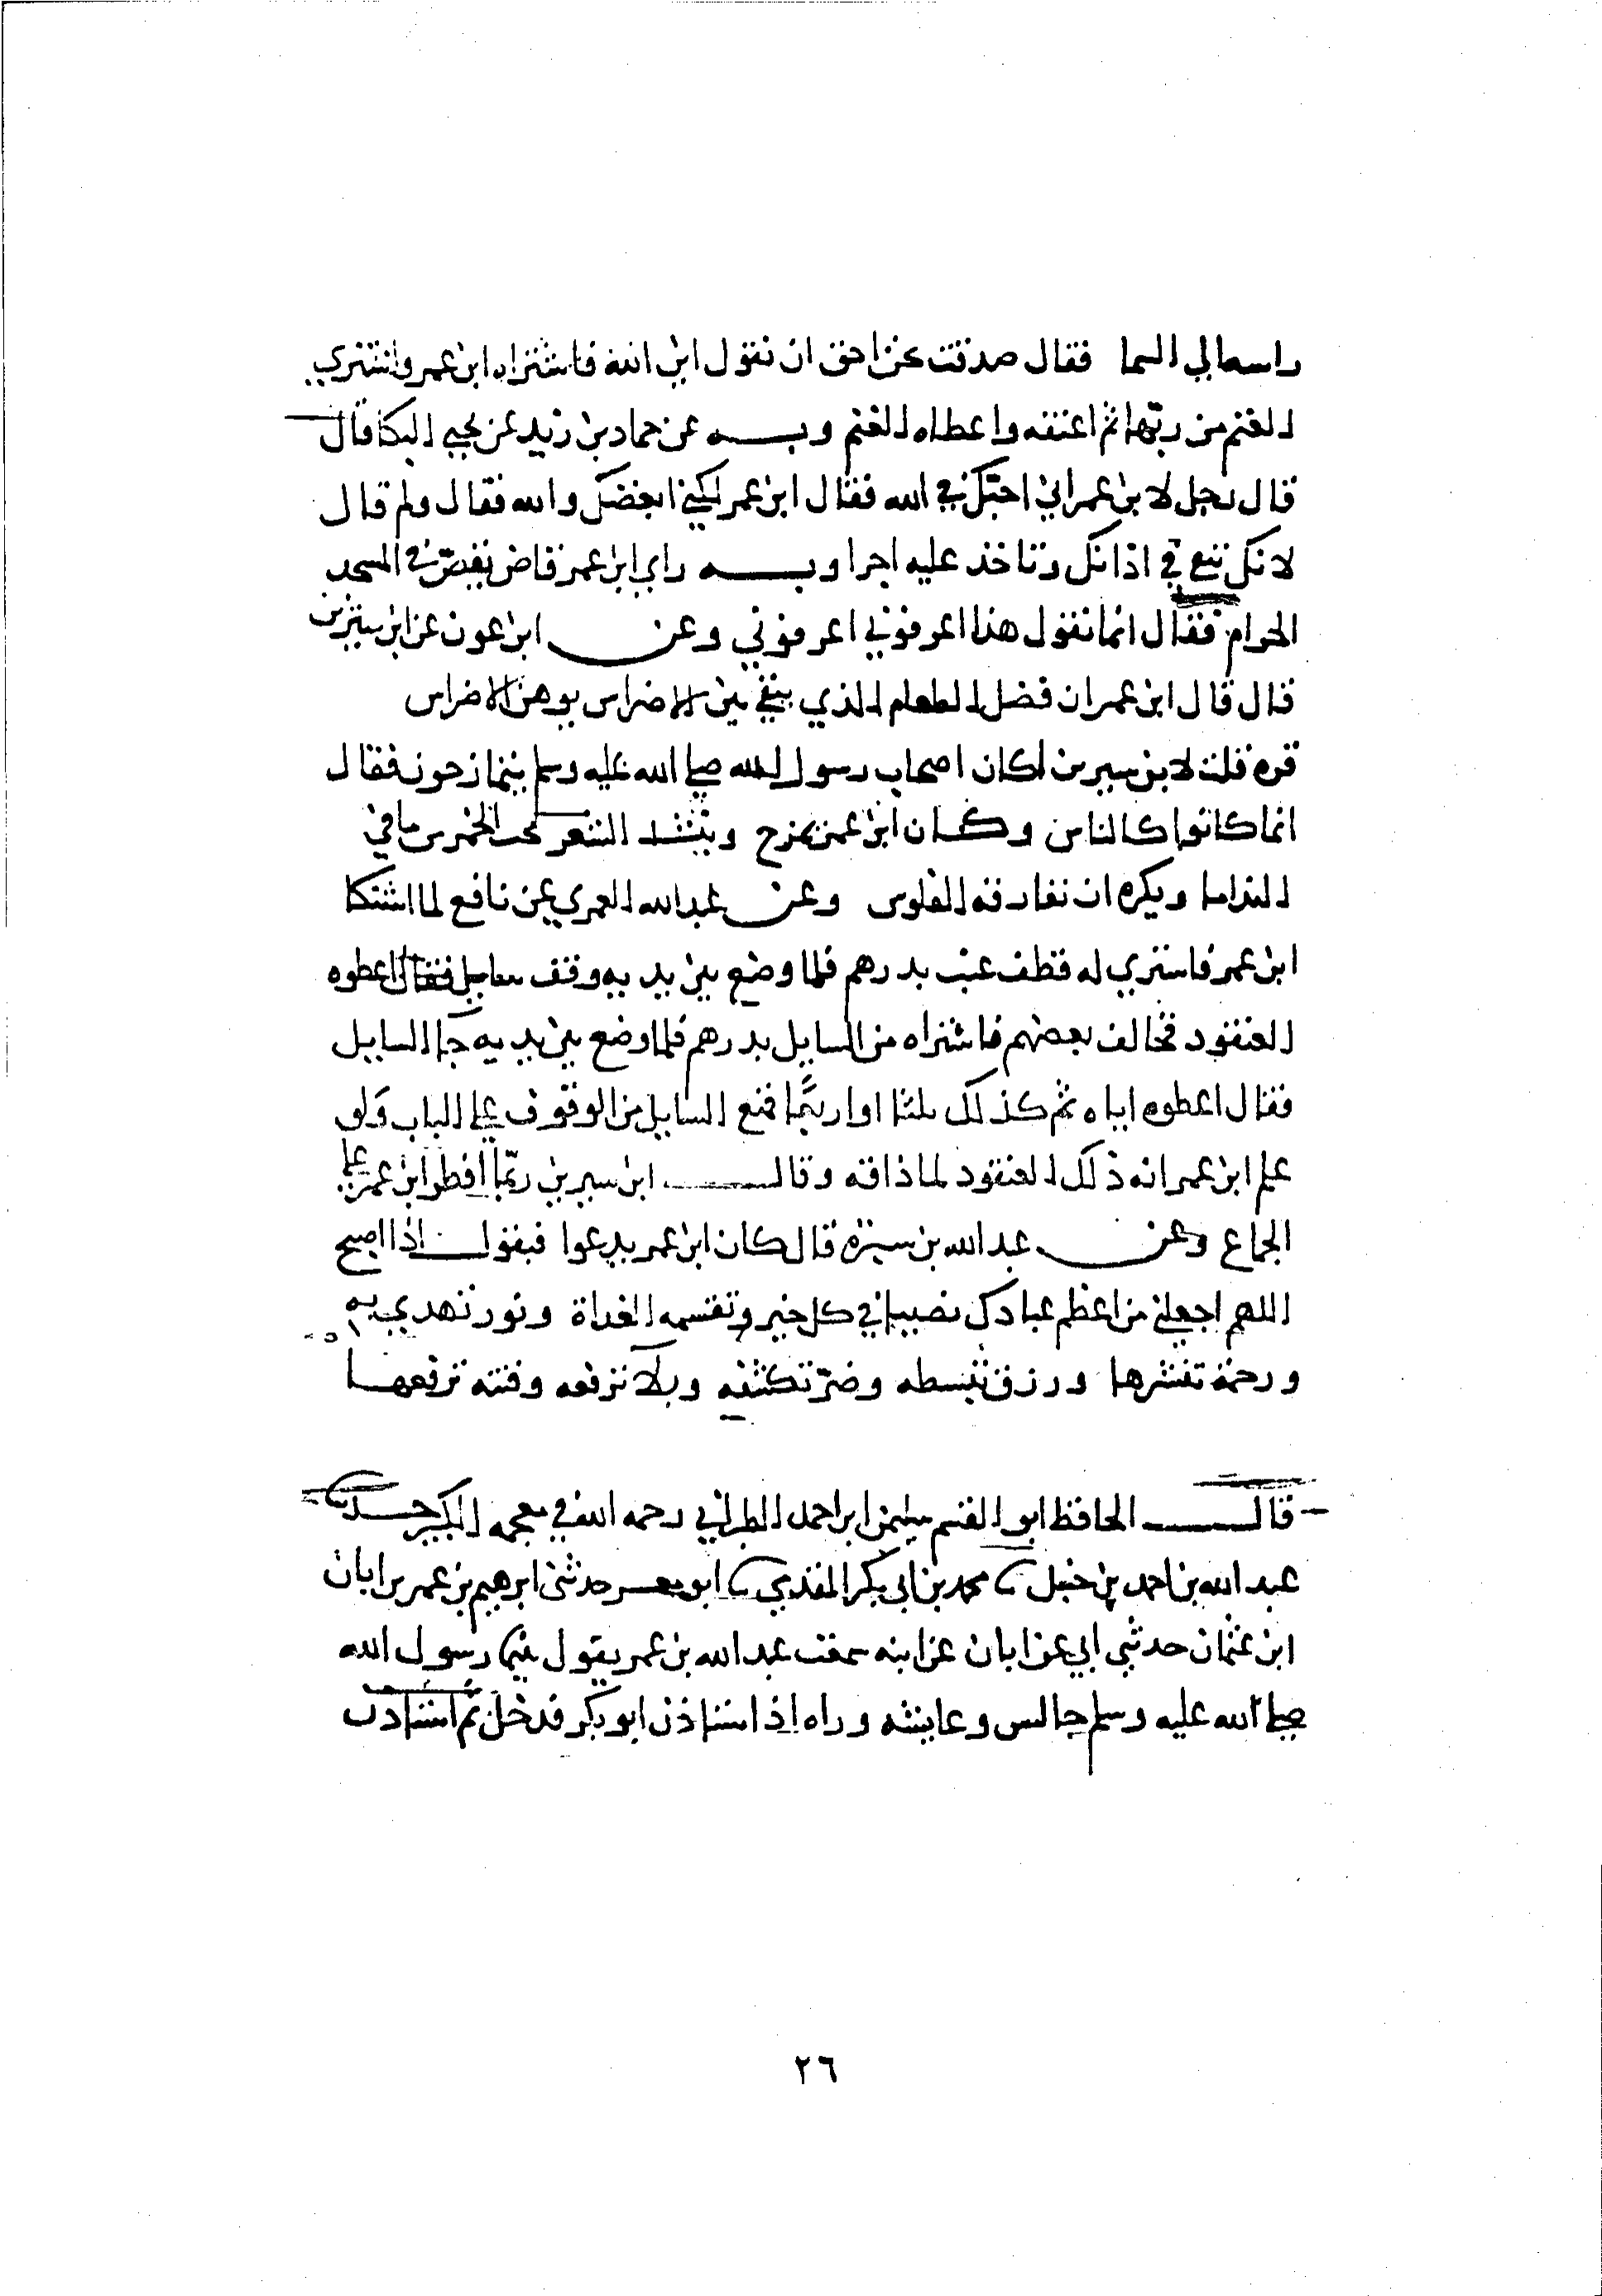 راسه الي السما فقال صدقت نحن احق ان نقول اين الله فاشتراه ابن عمر واشتري
الغنم من ربها ثم اعتقه واعطاه الغنم وبه عن حماد بن زيد عن يحيي البكا قال
قال رجل لابن عمر اني احبك في الله فقال ابن عمر لكني ابغضك والله فقال ولم قال
لانك في اذانك وتاخذ عليه اجرا وبه راي ابن عمر قاض يقص في المسجد
الحرام فقال انما تقول هذا اعرفوني اعرفوني وعن ابن عون عن ابن سيرين
قال قال ابن عمر ان فضل الطعام الذي يبقي بين الاضراس يوهن الاضراس
قره قلت لابن سيرين اكان اصحاب رسول الله صلي الله عليه وسلم يتمازحون فقال
انما كانوا كالناس وكان ابن عمر يمزح وينشد الشعر يحب الخمر من مافي
النداما ويكره ان تفارقه الفلوس وعن عبد الله العمري عن نافع لما اشتكا
ابن عمر فاشتري له قطف عنب بدرهم فلما وضع بين يديه وقف سايل فقال اعطوه
العنقود فخالف بعضهم فاشتراه من السايل بدرهم فلما وضع بين يديه جا السايل
فقال اعطوه اياه ثم كذلك ثلثا او اربعا فمنع السايل من الوقوف علي الباب ولو
علم ابن عمر انه ذلك العنقود لما ذاقه وقال ابن سيرين ربما افطر ابن عمر علي
الجماع وعن عبد الله بن سبرة قال كان ابن عمر يدعوا فيقول اذا اصبح
اللهم اجعلني من اعظم عبادك نصيبا في كل خير تقسمه الغداة ونور تهدي به
ورحمة تنشرها ورزق تبسطه وضر تكشفه وبلا ترفعه وفتنه ترفعها
قال الحافظ ابو القسم سليمن ابن احمد الطبراني رحمه الله في معجمه الكبير حدثنا
عبد الله بن احمد بن حنبل ثنا محمد بن ابي بكر المقدمي ثنا ابو معسر حدثني ابرهيم بن عمر بن ابان
ابن عثمان حدثني ابي عن ابان عن ابنه سمعت عبد الله بن عمر يقول بينما رسول الله
صلي الله عليه وسلم جالس وعايشه وراه اذ استاذن ابو بكر فدخل ثم استاذن
٢٦